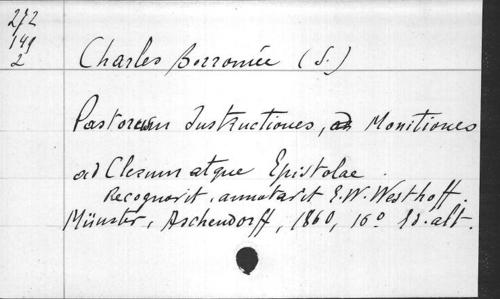 272
149
2
Charles Borromée (S.)
Pastorum Instructiones, ad Monitiones
ad Clerum atque Epistolae.
Recognovit, annotavit E. W. Westhoff.
Münster, Aschendorff, 1860, 16° Ed. alt.